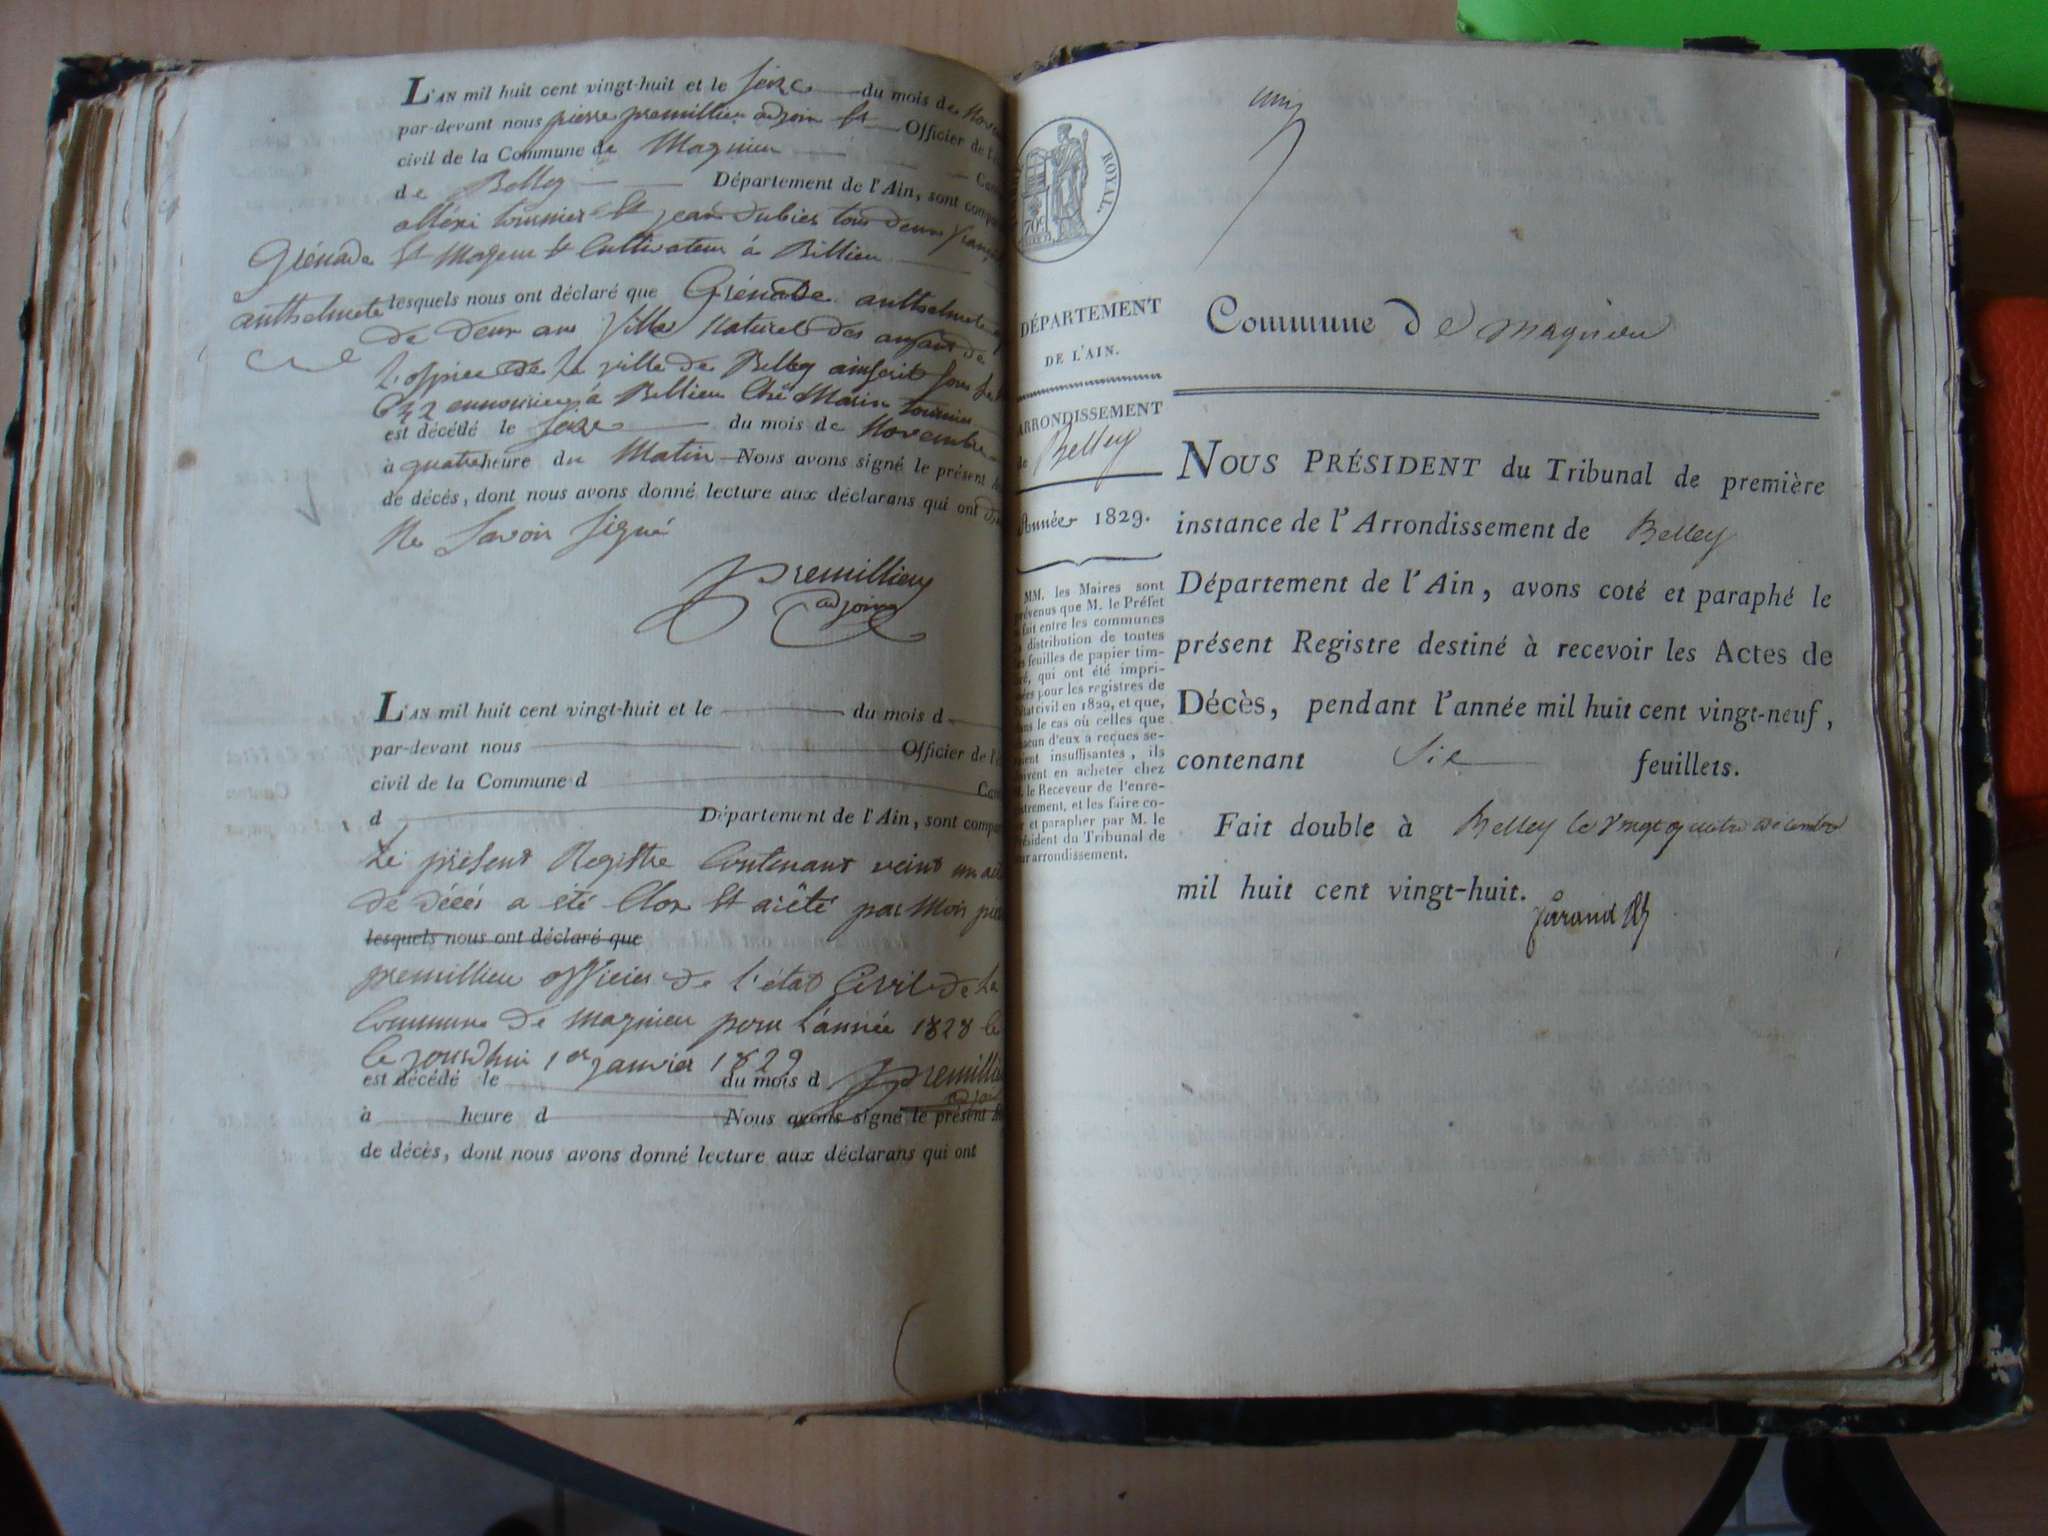 L'AN mil huit cent vingt-huit et le seize du mois de Nov
par-devant nous pierre premillieu adjoin et Officier de l'é
civil de la Commune de Magnieu Can
de Belley Département de l'Ain, sont compar
tournier et jean dubies tous deux
Grénade
et Mageur et Cultivateur à Billieu
anthelmete
lesquels nous ont déclaré que Grénade anthelmete
de deux ans fille Naturel des anfans de
l'ospice de la ville de Belley ainscrit sous le
632 ennourice à Billieu Ché Marin tournier
est décédé le seize du mois de Novembre
à quatre heure du Matin Nous avons signé le présent
de décès, dont nous avons donné lecture aux déclarans qui ont
Ne Savoir Signé
premillieu
adjoint
L'AN mil huit cent vingt-huit et le du mois d
par-devant nous Officier de l'é
civil de la Commune d Can
d Département de l'Ain, sont compar
Le présent Registre Contenant veint un act
de décés a été Clos et arêté par Mois pier
lesquels nous ont déclaré que
premillieu officier de l'état Civil de la
Commune de magnieu pour l'année 1828 le
le jourdhui 1er janvier 1829
est décédé le du mois d premillieu
à heure d Nous avons signé le présent
de décès, dont nous avons donné lecture aux déclarans qui ont
ROYAL.
70
DÉPARTEMENT
DE L'AIN.
ARRONDISSEMENT
de Belley
Année 1829.
MM. les Maires sont
prévenus que M. le Préfet
a fait entre les communes
la distribution de toutes
les feuilles de papier tim-
bré, qui ont été impri-
mées pour les registres de
l'état civil en 1829, et que,
dans le cas où celles que
chacun d'eux a reçues se-
raient insuffisantes, ils
doivent en acheter chez
M. le Receveur de l'enre-
gistrement, et les faire co-
ter et parapher par M. le
Président du Tribunal de
leur arrondissement.
Commune de magnieu
NOUS PRÉSIDENT du Tribunal de première
instance de l'Arrondissement de Belley
Département de l'Ain, avons coté et paraphé le
présent Registre destiné à recevoir les Actes de
Décès, pendant l'année mil huit cent vingt-neuf,
contenant Six feuillets.
Fait double à Belley le vingt quatre décembre
mil huit cent vingt-huit.